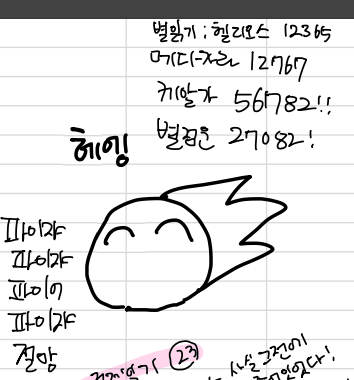 별읽기 ; 헬리오스 12365
메디-자라 12767
케알가 56782!!
별점은 27082!
헤잉
파이쟈
파이쟈
파이어
파이쟈
절망
㉓ 사실 그전에